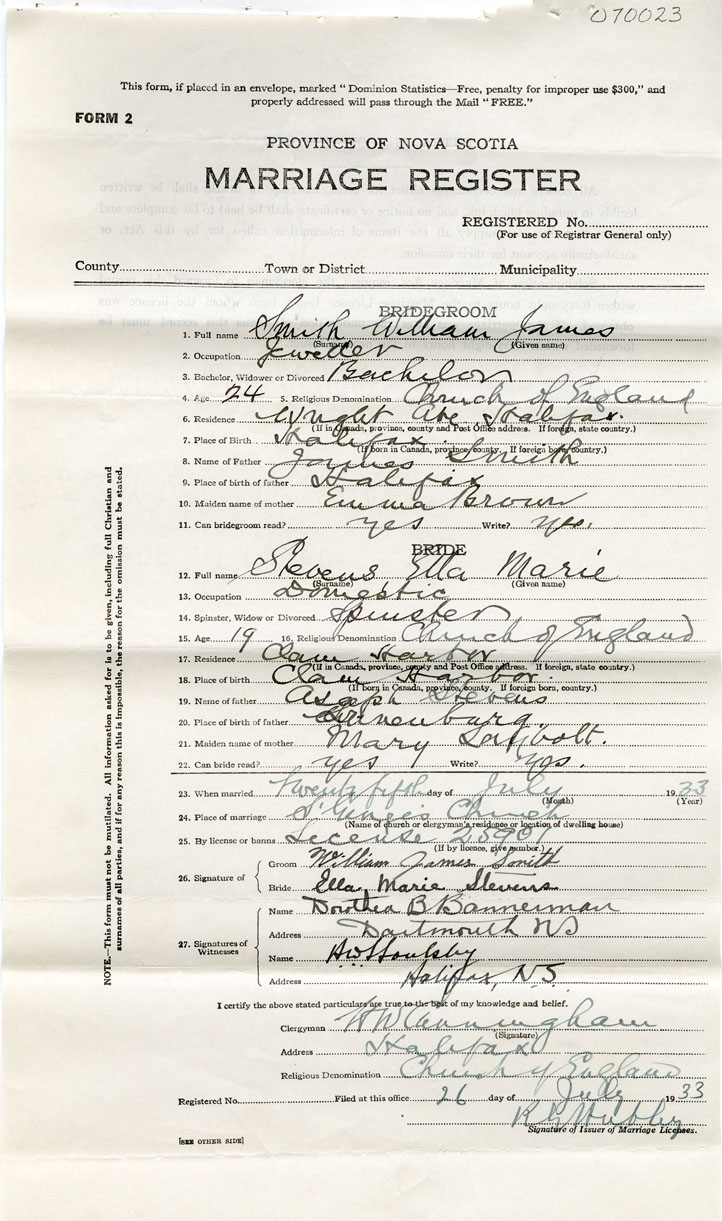 070023
This form, if placed in an envelope, marked "Dominion Statistics—Free, penalty for improper use $300," and
properly addressed will pass through the Mail "FREE."
FORM 2
PROVINCE OF NOVA SCOTIA
MARRIAGE REGISTER
REGISTERED No.
(For use of Registrar General only)
County Town or District Municipality
BRIDEGROOM
1. Full name Smith William James
(Surname) (Given name)
2. Occupation Jeweller
3. Bachelor, Widower or Divorced Bachelor
4. Age 24 5. Religious Denomination Church of England
6. Residence Wright Ave Halifax.
(If in Canada, province, county and Post Office address. If foreign, state country.)
7. Place of Birth Halifax.
(If born in Canada, province, county. If foreign born, country.)
8. Name of Father James Smith
9. Place of birth of father Halifax
10. Maiden name of mother Emma Brown
11. Can bridegroom read? yes Write? yes.
BRIDE
12. Full name Stevens Ella Marie
(Surname) (Given name)
13. Occupation Domestic
14. Spinster, Widow or Divorced Spinster
15. Age 19 16. Religious Denomination Church of England
17. Residence Clam Harbor
(If in Canada, province, county and Post Office address. If foreign, state country.)
18. Place of birth Clam Harbor.
(If born in Canada, province, county. If foreign born, country.)
19. Name of father Asaph Stevens
20. Place of birth of father Lunenburg.
21. Maiden name of mother Mary
22. Can bride read? yes Write? yes.
23. When married twenty fifth day of July 1933
(Month) (Year)
24. Place of marriage Church
(Name of church or clergyman's residence or location of dwelling house)
25. By license or banns License
(If by licence, give number.)
26. Signature of
Groom William James Smith
Bride Ella Marie Stevens
27. Signatures of Witnesses
Name Dorothea B Bannerman
Address Dartmouth NS
Name
Address Halifax, NS
I certify the above stated particulars are true to the best of my knowledge and belief.
Clergyman Cunningham
(Signature)
Address Halifax
Religious Denomination Church of England
Registered No. Filed at this office 26 day of July 1933
Signature of Issuer of Marriage Licenses.
[SEE OTHER SIDE]
NOTE.—This form must not be mutilated. All information asked for is to be given, including full Christian and
surnames of all parties, and if for any reason this is impossible, the reason for the omission must be stated.